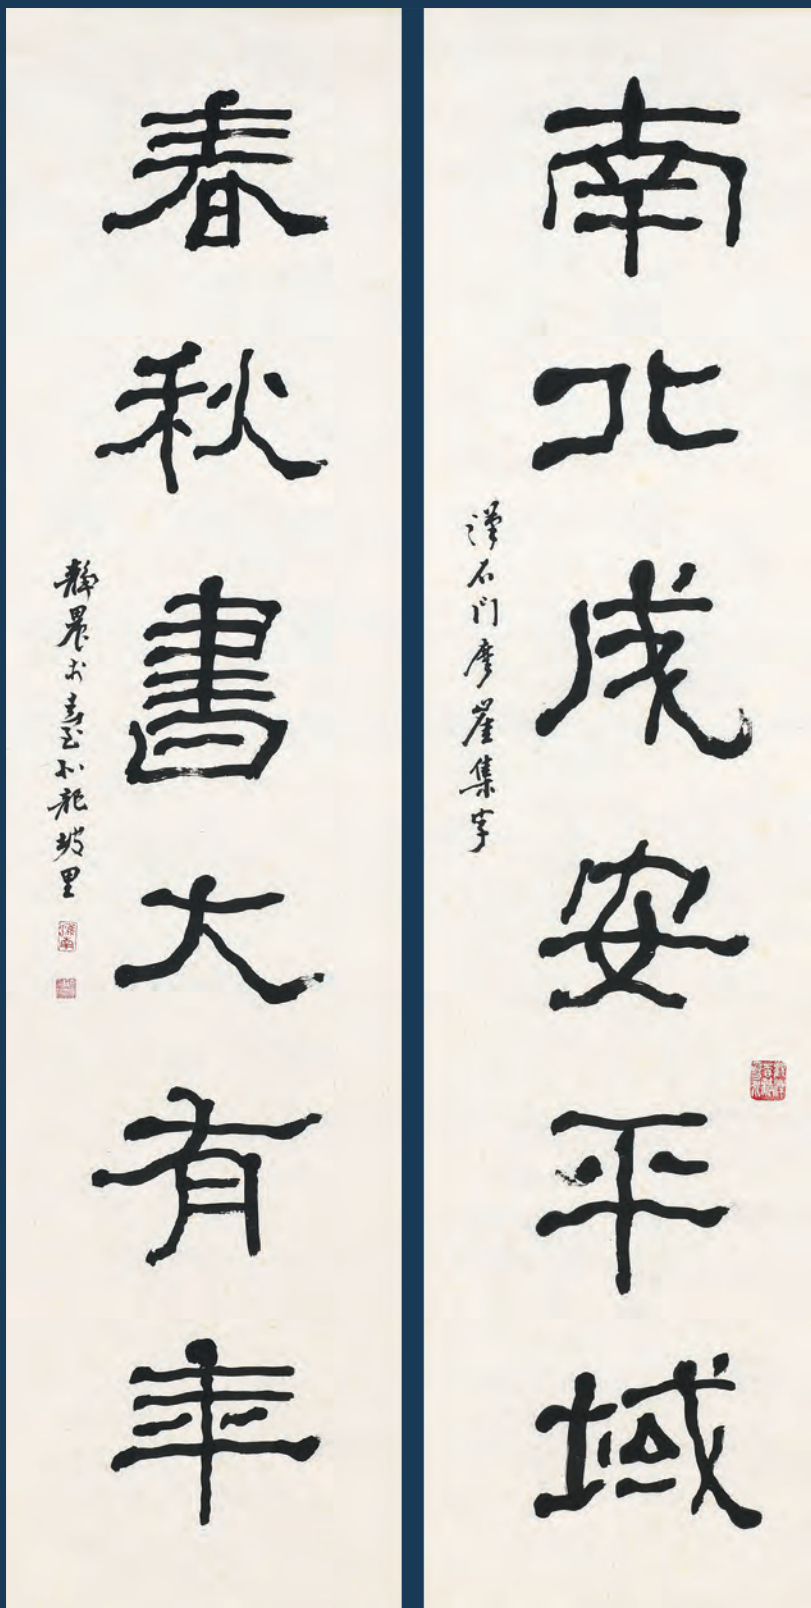 南北咸安平域
漢石門摩崖集字
春秋書大有年
靜農於臺北龍坡里